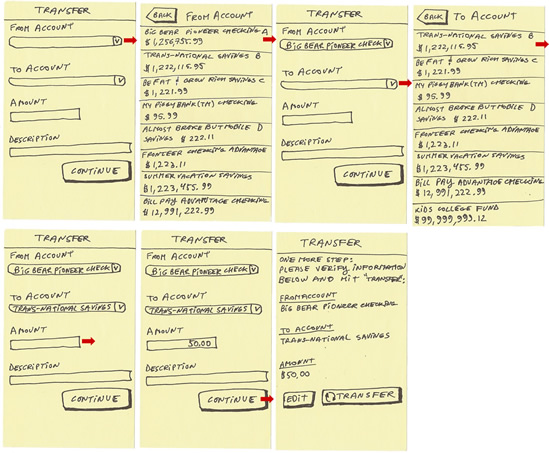 TRANSFER
FROM ACCOUNT
V
TO ACCOUNT
V
AMOUNT
DESCRIPTION
CONTINUE
BACK FROM ACCOUNT
BIG BEAR PIONEER CHECKING A
$1,256,755.99
TRANS-NATIONAL SAVINGS B
$1,222,115.95
BE FAT & GROW RICH SAVINGS C
$1,221.99
MY PIGGYBANK(TM) CHECKING
$95.99
ALMOST BROKE BUT MOBILE D
SAVINGS $222.11
FRONTEER CHECKING ADVANTAGE
$1,223.11
SUMMER VACATION SAVINGS
$1,223,455.99
BILL PAY ADVANTAGE CHECKING
$12,991,222.99
TRANSFER
FROM ACCOUNT
BIG BEAR PIONEER CHECK V
TO ACCOUNT
V
AMOUNT
DESCRIPTION
CONTINUE
BACK TO ACCOUNT
TRANS-NATIONAL SAVINGS B
$1,222,115.95
BE FAT & GROW RICH SAVINGS C
$1,221.99
MY PIGGYBANK(TM) CHECKING
$95.99
ALMOST BROKE BUT MOBILE D
SAVINGS $222.11
FRONTEER CHECKING ADVANTAGE
$1,223.11
SUMMER VACATION SAVINGS
$1,223,455.99
BILL PAY ADVANTAGE CHECKING
$12,991,222.99
KIDS COLLEGE FUND
$99,999,993.12
TRANSFER
FROM ACCOUNT
BIG BEAR PIONEER CHECK V
TO ACCOUNT
TRANS-NATIONAL SAVINGS V
AMOUNT
DESCRIPTION
CONTINUE
TRANSFER
FROM ACCOUNT
BIG BEAR PIONEER CHECK V
TO ACCOUNT
TRANS-NATIONAL SAVINGS V
AMOUNT
50.00
DESCRIPTION
CONTINUE
TRANSFER
ONE MORE STEP:
PLEASE VERIFY INFORMATION
BELOW AND HIT "TRANSFER":
FROM ACCOUNT
BIG BEAR PIONEER CHECKING
TO ACCOUNT
TRANS-NATIONAL SAVINGS
AMOUNT
$50,00
EDIT TRANSFER